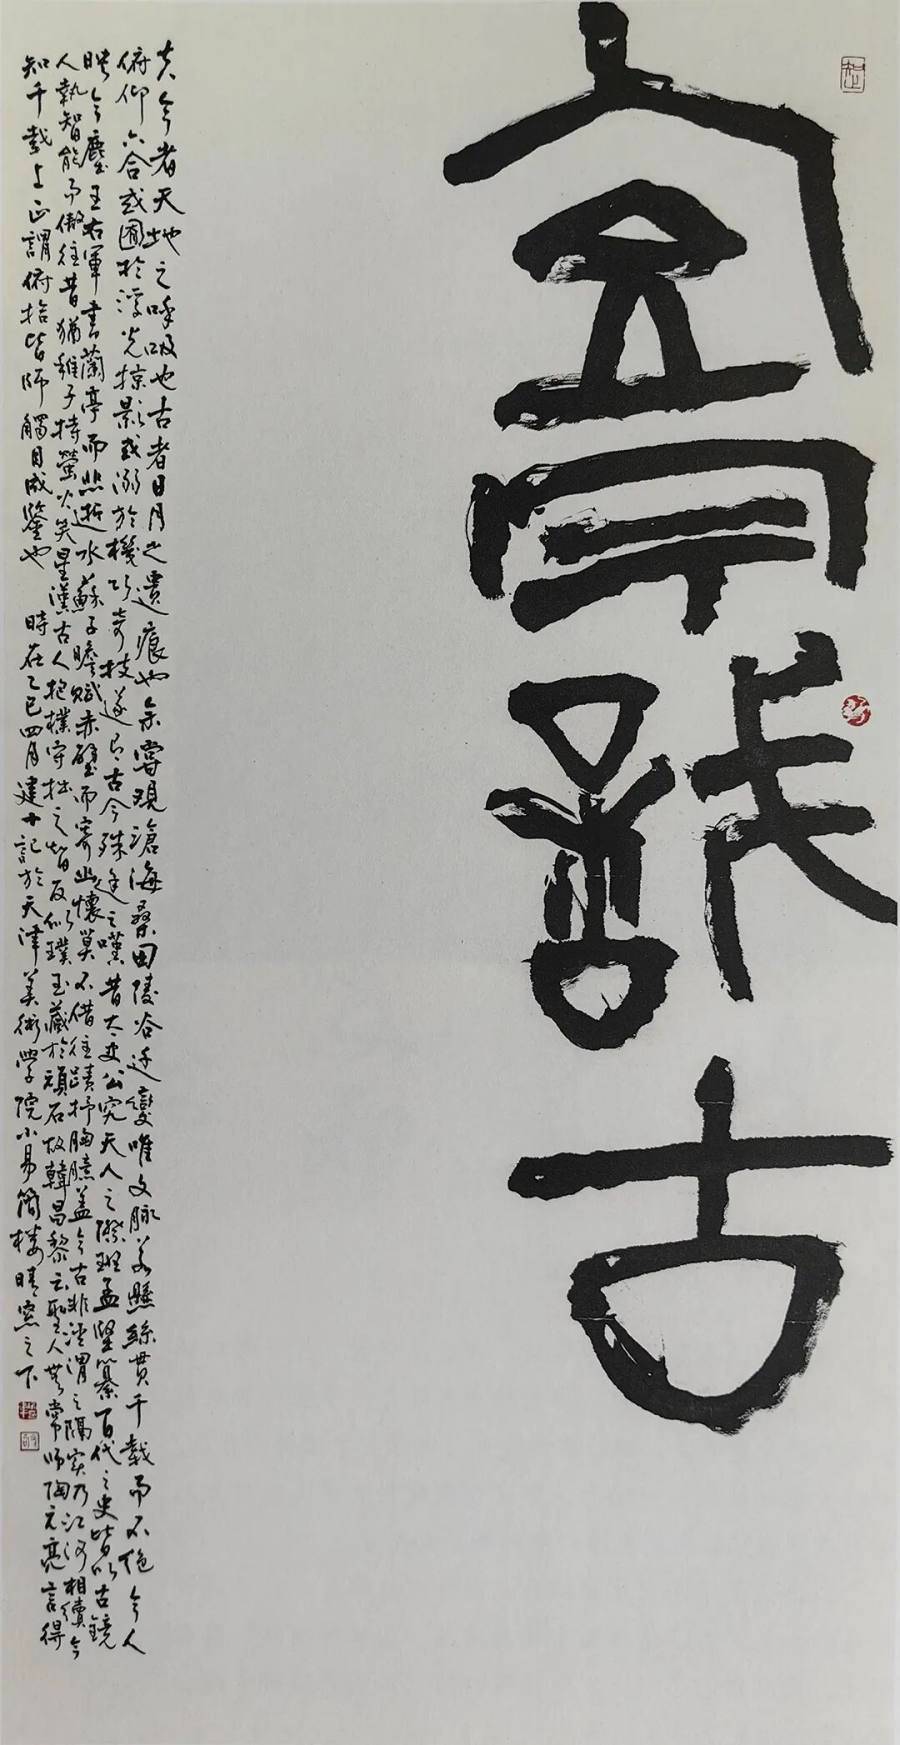 古
夫今者天地之呼吸也古者日月之遺痕也余嘗观滄海桑田陵谷迁變唯文脉若懸絲贯千載而不绝今人
俯仰六合或囿於浮光掠影或溺於機巧奇技遂有古今殊途之嘆昔太史公究天人之際班孟堅纂百代之史皆以古鏡
映今塵王右軍書蘭亭而悲逝水蘇子瞻赋赤壁而寄幽懷莫不借往蹟抒胸臆盖今古非涇渭之隔实乃江河相續今
人執智能而傲往昔猶稚子持螢火笑星漢古人抱樸守拙之智反似璞玉藏於頑石故韓昌黎云聖人無常师陶元亮言得
知千載上正謂俯拾皆師觸目成鑒也 時在乙巳四月建中記於天津美術学院小易簡楼晴窓之下